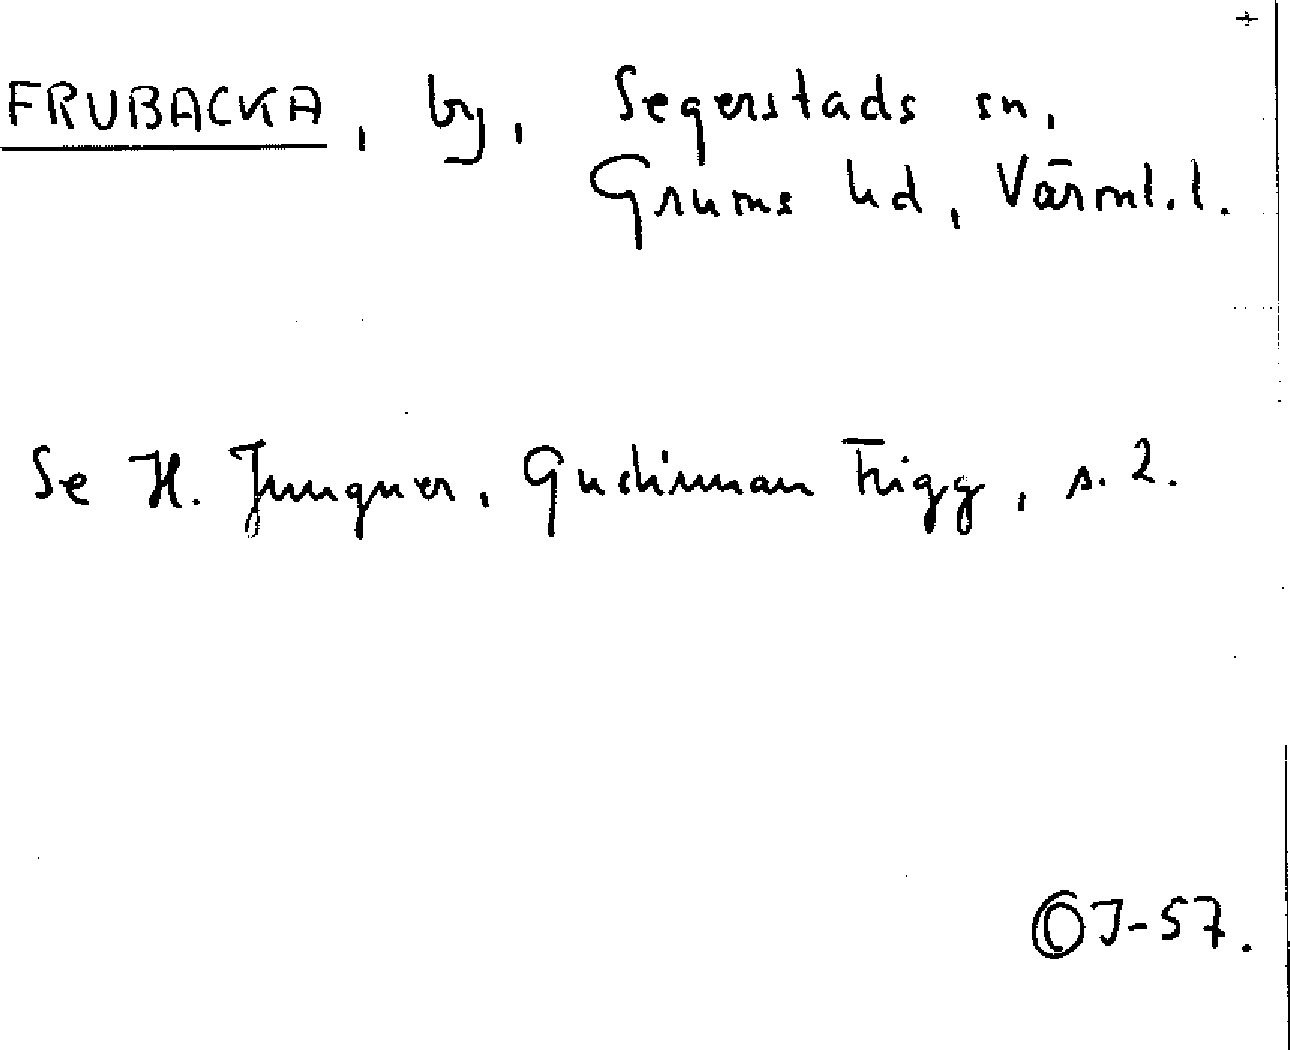 FRUBACKA, by, Segerstads sn,
Grums hd, Värml.l.
Se H. Jungner, Gudinnan Frigg, s. 2.
OJ-57.